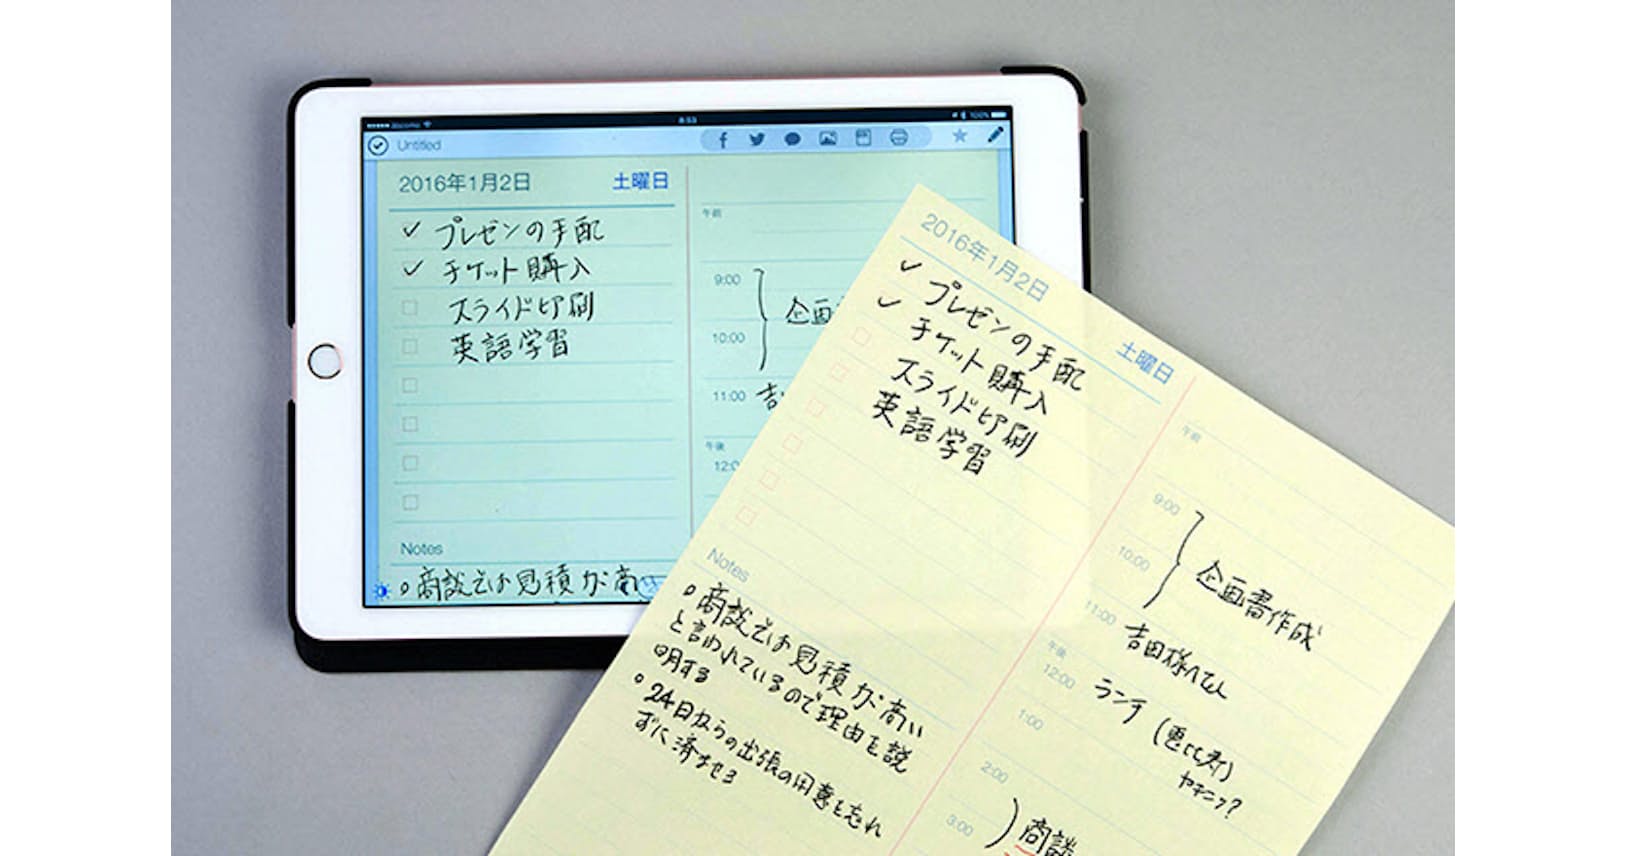 docomo 8:53 100%
Untitled
2016年1月2日 土曜日
プレゼンの手配
チケット購入
スライド印刷
英語学習
Notes
商談先は見積が高い
午前
9:00
企画
10:00
11:00 吉
午後
12:0
2016年1月2日
土曜日
プレゼンの手配
チケット購入
スライド印刷
英語学習
Notes
商談先は見積が高い
と言われているので理由を説
明する
24日からの出張の用意を忘れ
ずに済ませる
午前
9:00
企画書作成
10:00
11:00
吉田様へ
午後
12:00
ランチ (恵比寿)
1:00
2:00
3:00
商談